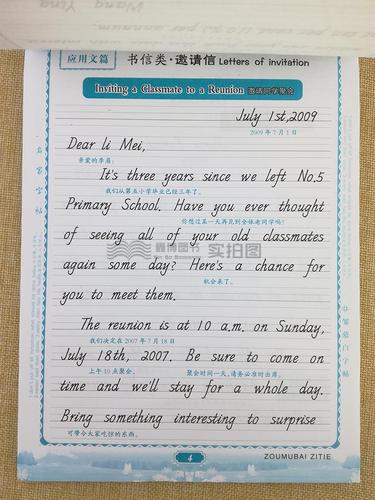 应用文篇 书信类·邀请信 Letters of invitation
Inviting a Classmate to a Reunion 邀请同学聚会
July 1st,2009
2009年7月1日
Dear Li Mei,
亲爱的李眉:
It's three years since we left No.5
我们从第五小学毕业已经三年了。
Primary School. Have you ever thought
你想过某一天再见到全体老同学吗?
of seeing all of your old classmates
again some day? Here's a chance for
机会来了。
you to meet them.
The reunion is at 10 a.m. on Sunday,
我们决定在2007年7月18日
July 18th, 2007. Be sure to come on
上午10点聚会。 聚会时间一天,请务必准时出席。
time and we'll stay for a whole day.
Bring something interesting to surprise
可带令大家吃惊的东西。
4
ZOUMUBAI ZITIE
实拍图